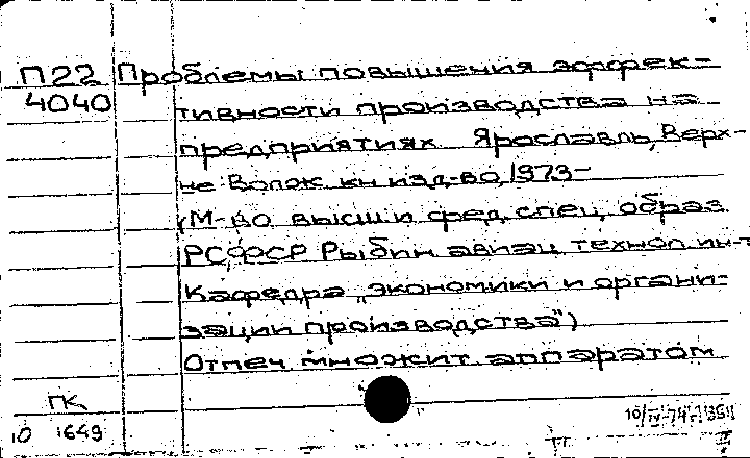 П22 Проблемы повышения эффек-
4040 тивности производства на
предприятиях Ярославль, Верх-
не Волж. кн изд-во, 1973-
(М-во высш и сред. спец. образ
РСФСР Рыбин авиац технол ин-т
Кафедра "экономики и органи-
зации производства")
Отпеч множит аппаратом
ГК
10 1649
10/IV-74г.